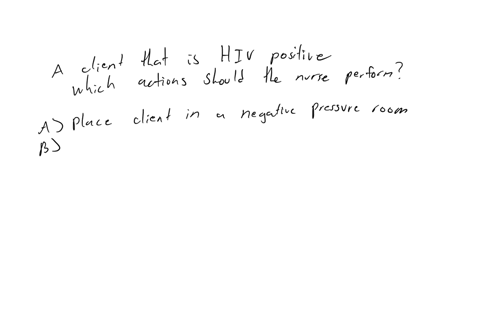 A client that is HIV positive
which actions should the nurse perform?
A) Place client in a negative pressure room
B)